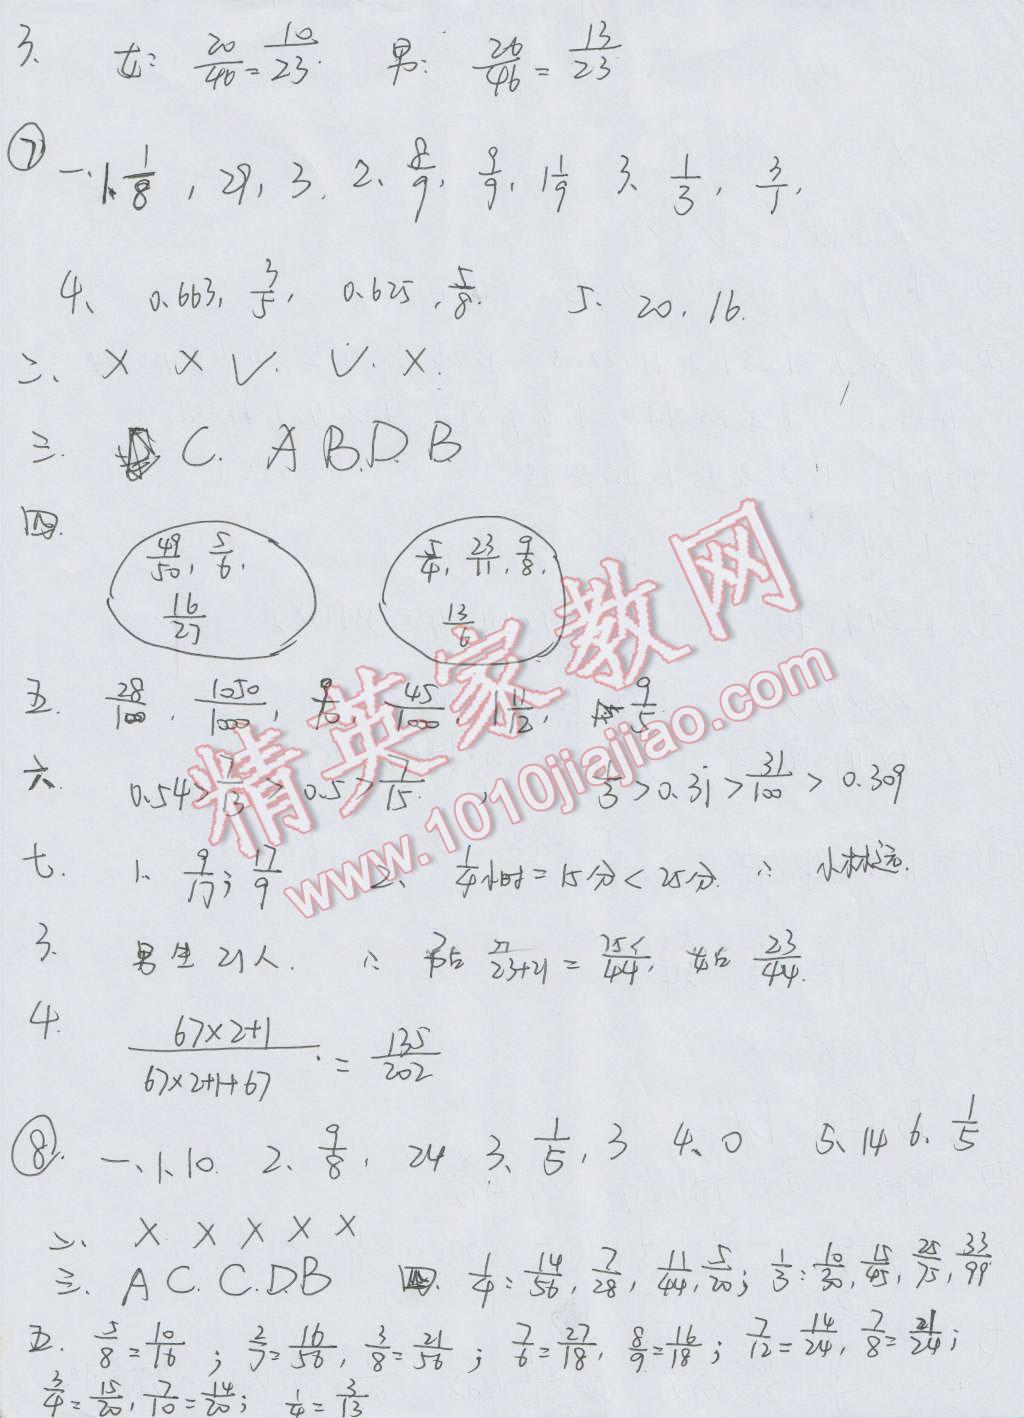 3、 女: 20/46=10/23. 男: 26/46=13/23
⑦ 一、1、1/8，29，3. 2、8/9，9/9，1 1/9 3、1/3，3/1，
4、 0.663，3/5， 0.625，5/8. 5、20，16.
二、 × × √. √. ×.
三. C. A B.D. B
四. 49/50，5/6， 5/4，23/11，9/8，
16/27 13/6
五. 28/100，1050/1000， 45/1000，1 11/12， 9/5
六. 0.54>7/13>0.5>7/15， 1/3>0.31>31/100>0.309
七. 1、9/17；17/9 2、1/4小时=15分<25分 ∴ 小林远.
3. 男生21人. ∴ 占 /23+21= /44， 女占 23/44.
4. 67×2+1/67×2+1+67=135/202
⑧. 一、1、10. 2、9/8，24 3、1/5，3 4、0 5、14 6、1/5
二、 × × × × ×
三、 A C. C.D.B 四. 1/4=14/56，7/28，11/44，5/20；1/3=10/30，15/45，25/75，33/99
五. 5/8=10/16；2/7=16/56，3/8=21/56；7/6=27/18，8/9=16/18；7/12=14/24，7/8=21/24；
3/4=15/20，7/10=14/20；1/4=3/13
精英家教网
www.1010jiajiao.com